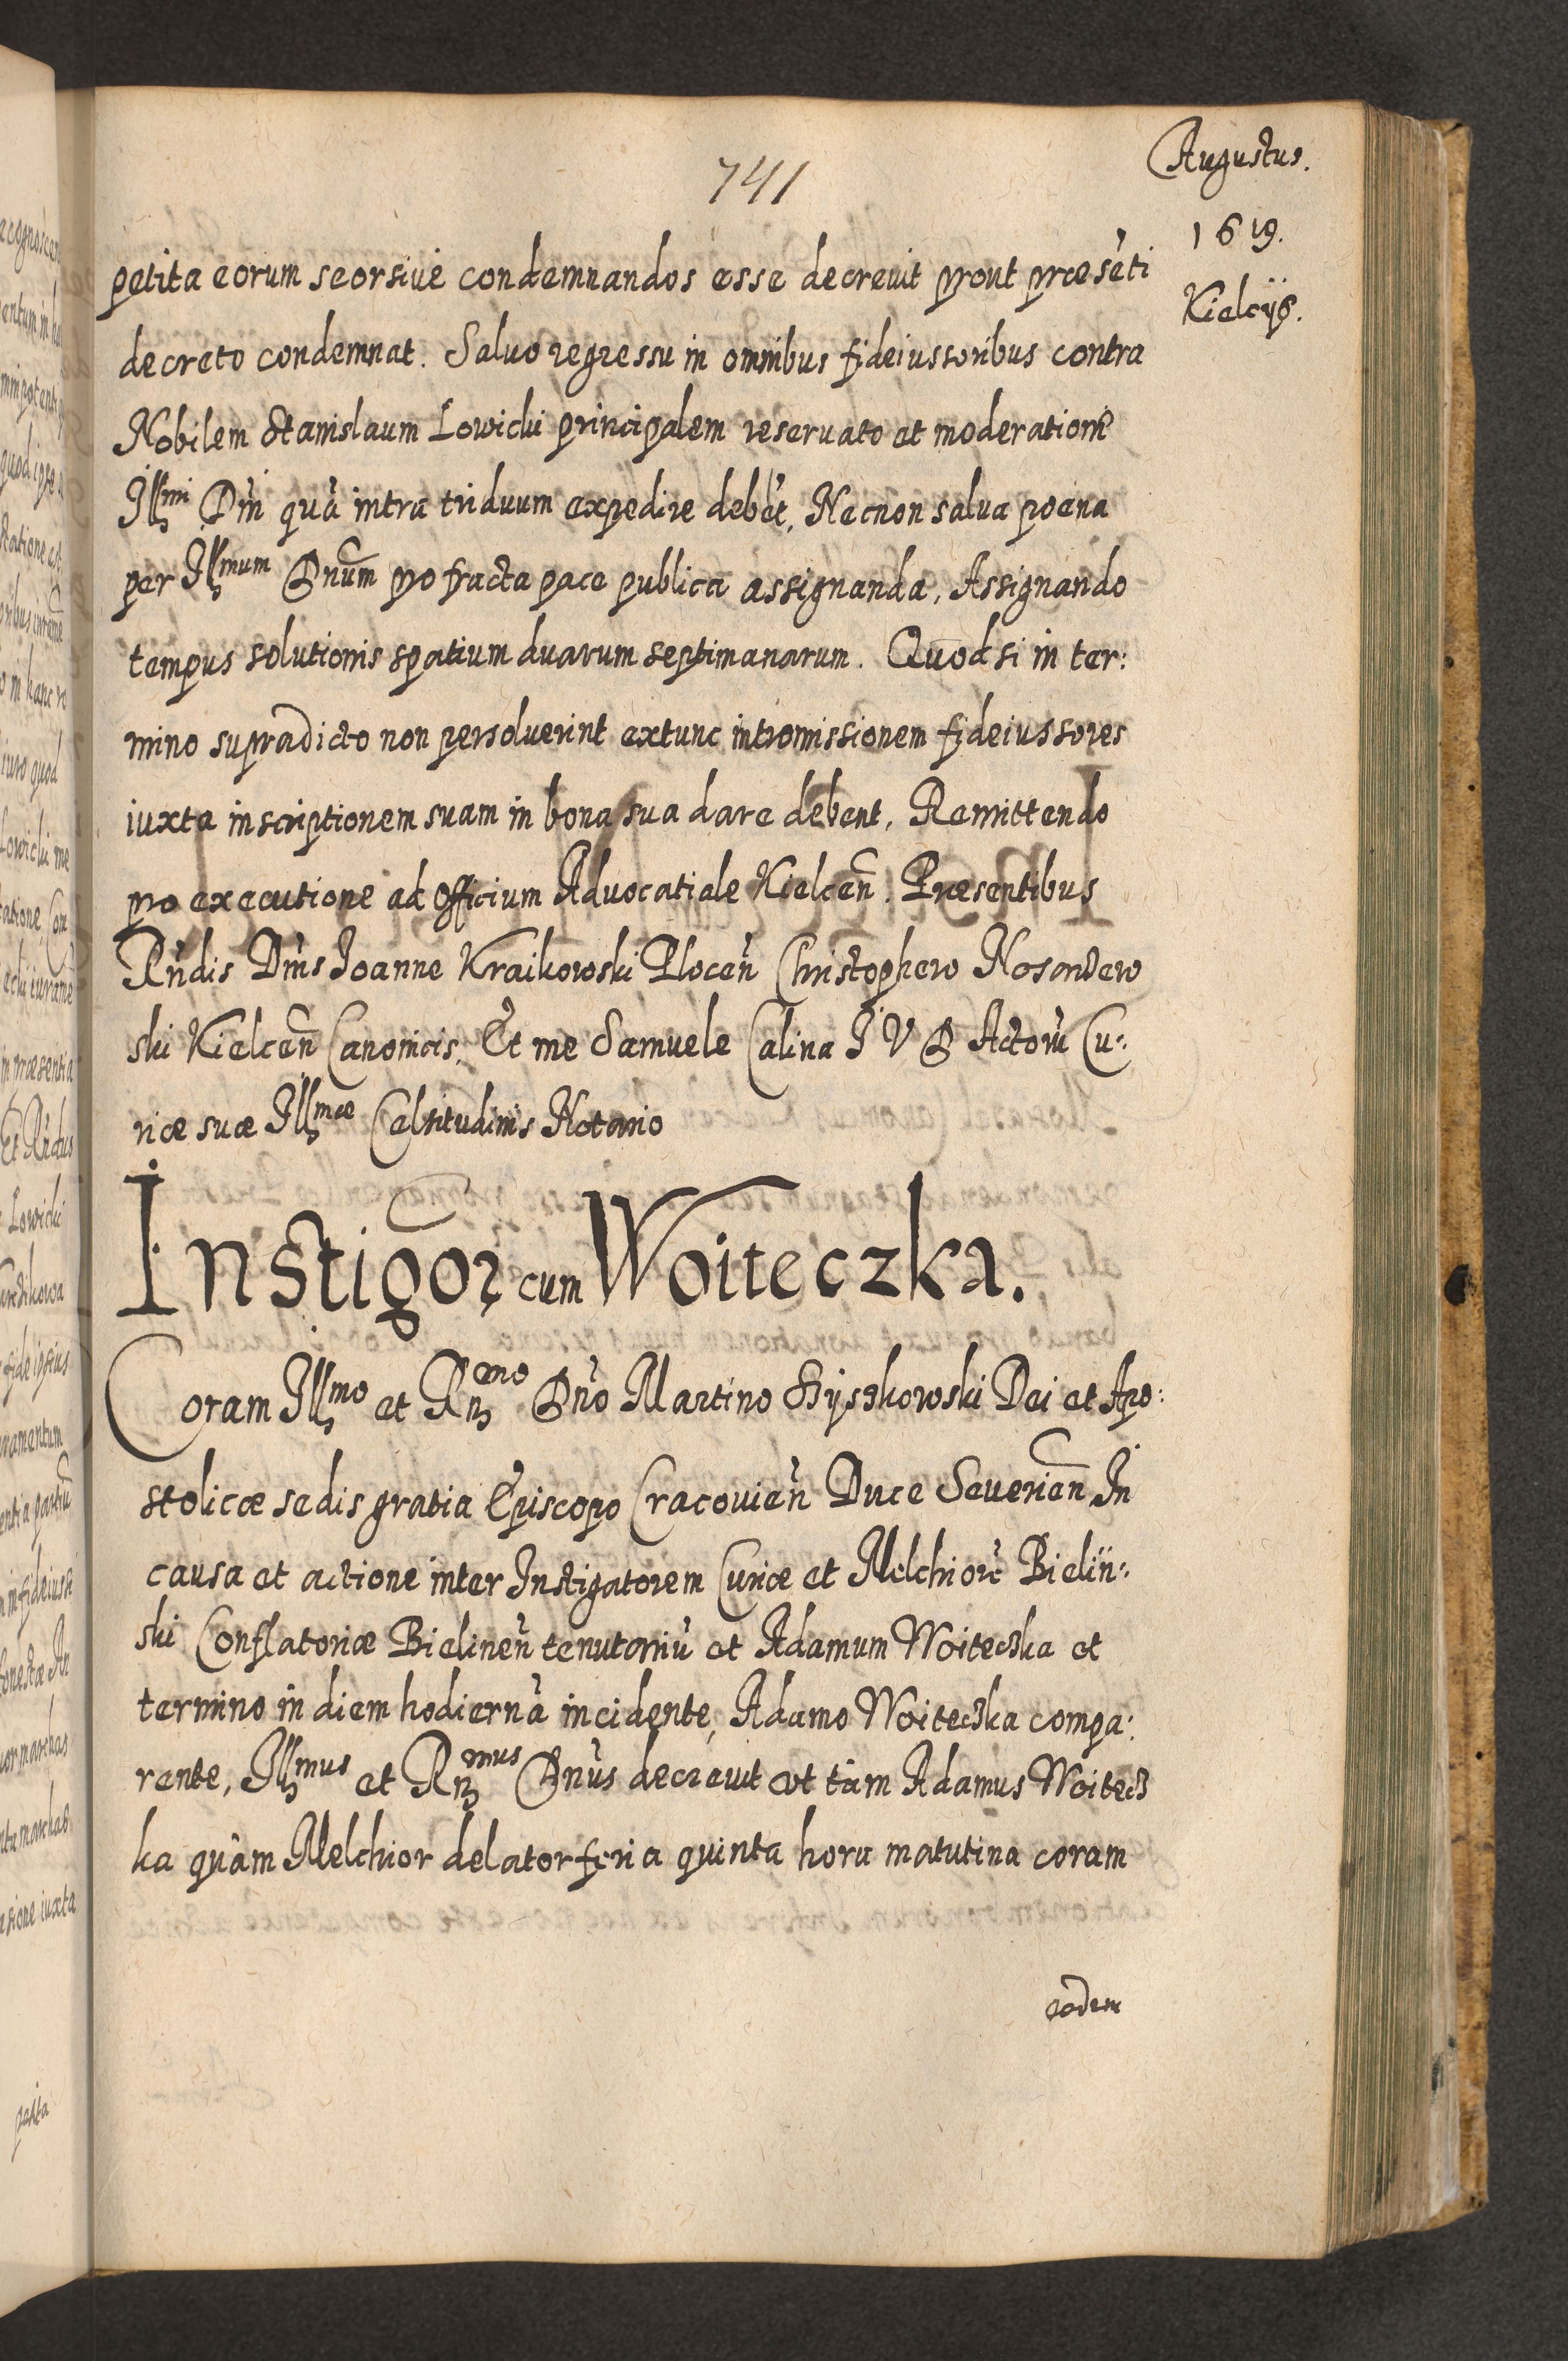 741
Augustus.
1619.
Kielcijs.
petita eorum seorsive condemnandos esse decrevit prout præsẽti
decreto condemnat. Salvo regressu in omnibus fideiussoribus contra
Nobilem Stanislaum Lowicki principalem reservato et moderationẽ
Illmi Dñi quã intra triduum expedire debẽt, Necnon salva poena
per Illmum Dnũm pro fracta pace publica assignanda, Assignando
tempus solutionis spatium duarum septimanarum. Quodsi in ter:
mino supradicto non persoluerint extunc intromissionem fideiussores
iuxta inscriptionem suam in bona sua dare debent, Remittendo
pro executione ad officium Advocatiale Kielceñ. Præsentibus
Rñdis Dñis Joanne Kraikowski Ploceñ Christophero Nosandew
ski Kielceñ Canonicis, Et me Samuele Calina I V D Actorũ Cu:
riæ suæ Illmæ Celsitudinis Notario
Instigor cum Woiteczka.
Coram Illmo et Rndmo Dño Martino Szyszkowski Dei et Apo:
stolicæ sedis gratia Episcopo Cracovieñ Duce Severieñ In
causa et actione inter Instigatorem Curiæ et Melchiorẽ Bielin:
ski Conflatoriæ Bielineñ tenutoriũ et Adamum Woiteczka et
termino in diem hodiernã incidente, Adamo Woiteczka compa:
rente, Illmus et Rndmus Dñus decrevit ut tàm Adamus Woitecz
ka quàm Melchior delator feria quinta hora matutina coram
eodem